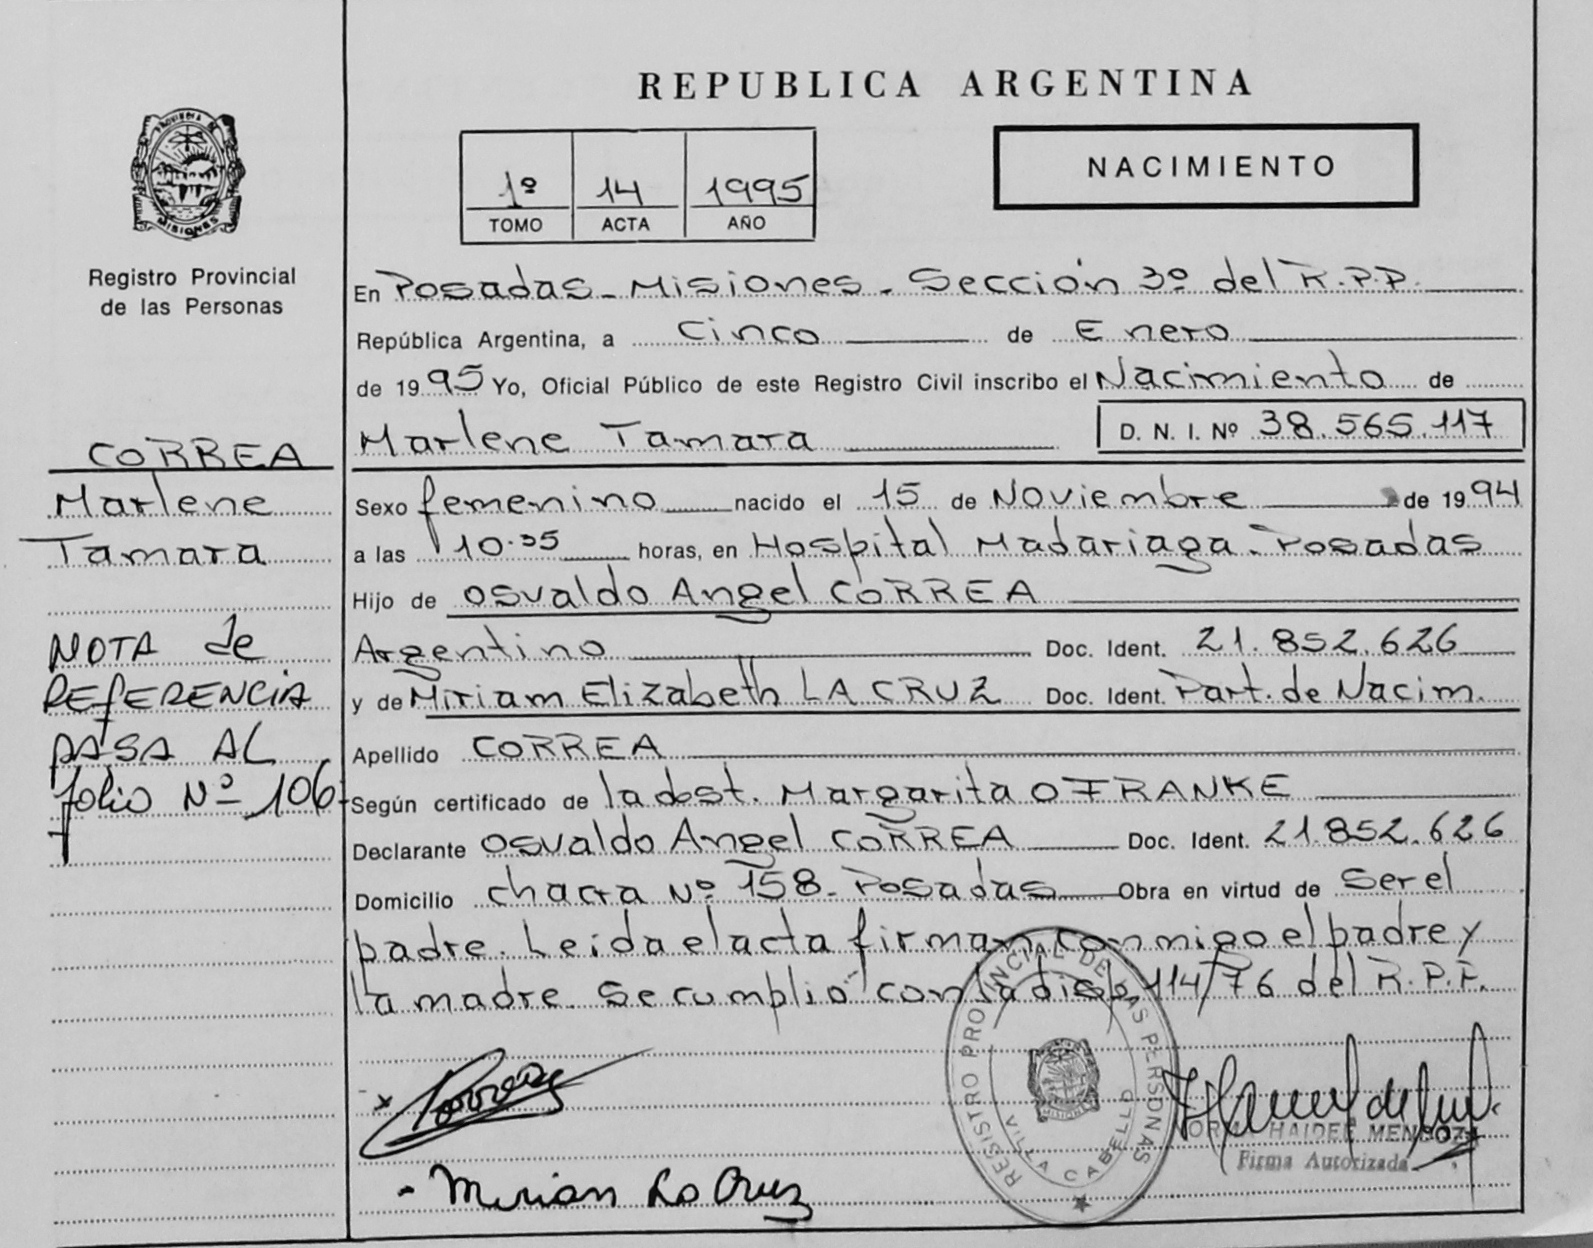 REPUBLICA ARGENTINA
PROVINCIA DE
MISIONES
Registro Provincial
de las Personas
1º 14 1995
TOMO ACTA AÑO
NACIMIENTO
En Posadas - Misiones - Sección 3º del R.P.P.
República Argentina, a cinco de Enero
de 1995 Yo, Oficial Público de este Registro Civil inscribo el Nacimiento de
Marlene Tamara D. N. I. Nº 38.565.117
CORREA
Marlene
Tamara
NOTA de
REFERENCIA
PASA AL
folio Nº 106
Sexo femenino nacido el 15 de Noviembre de 1994
a las horas, en Hospital Madariaga - Posadas
Hijo de Osvaldo Angel CORREA
Argentino Doc. Ident. 21.852.626
y de Miriam Elizabeth LA CRUZ Doc. Ident. Part. de Nacim.
Apellido CORREA
Según certificado de la obst. Margarita O FRANKE
Declarante Osvaldo Angel CORREA Doc. Ident. 21.852.626
Domicilio chacra Nº 158 - Posadas Obra en virtud de ser el
padre. Leida el acta firman conmigo el padre y
la madre. Se cumplió con la disp. 114/76 del R.P.P.
Correa
REGISTRO PROVINCIAL DE LAS PERSONAS
VILLA CABELLO
MISIONES
NORMA HAIDEE MENDOZA
Firma Autorizada
- Mirian La Cruz